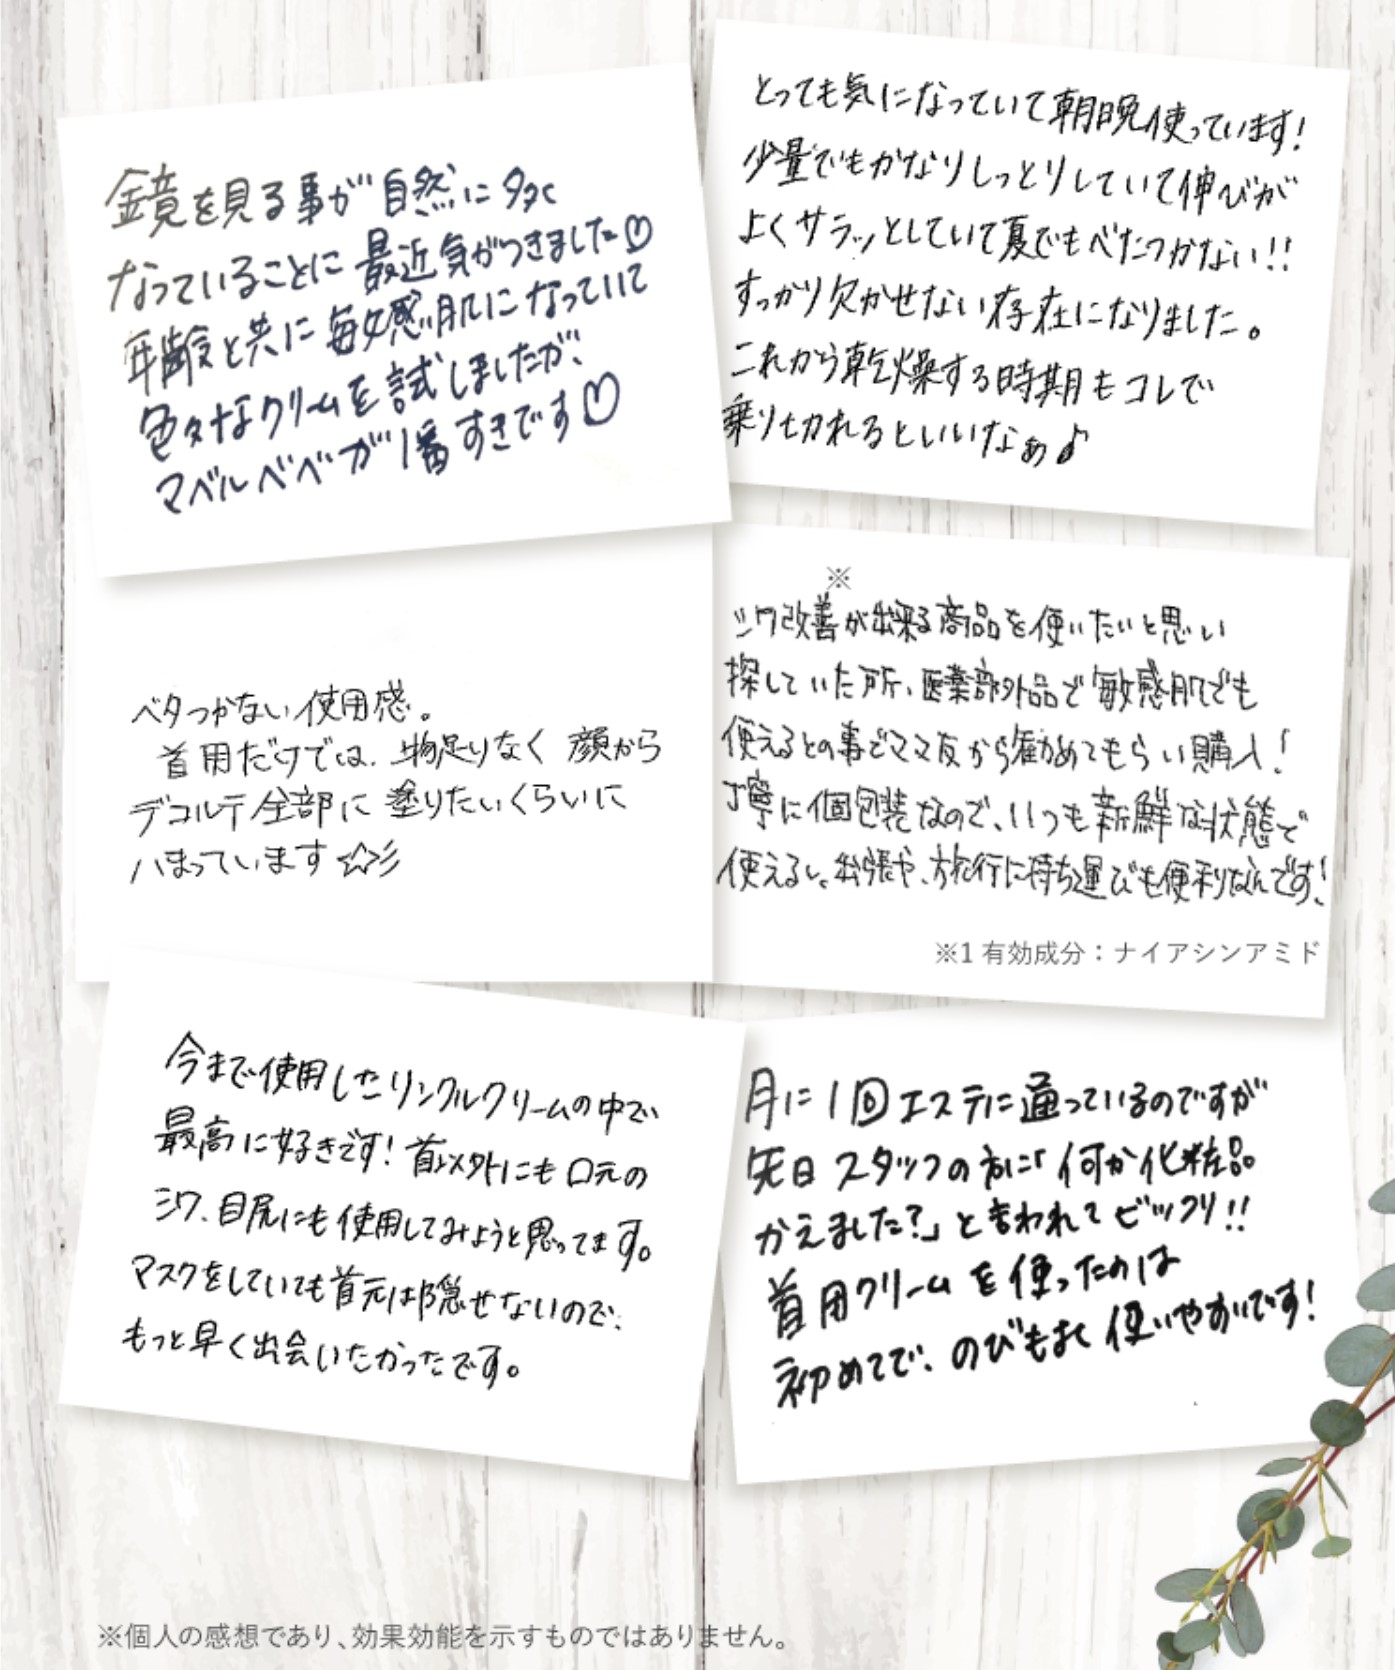 鏡を見る事が自然に多く
なっていることに最近気がつきました♡
年齢と共に敏感肌になっていて
色々なクリームを試しましたが、
マベルベベが1番すきです♡
とっても気になっていて朝晩使っています!
少量でもかなりしっとりしていて伸びが
よくサラッとしていて夏でもべたつかない!!
すっかり欠かせない存在になりました。
これから乾燥する時期もコレで
乗り切れるといいなぁ♪
ベタつかない使用感。
首用だけでは、物足りなく顔から
デコルテ全部に塗りたいくらいに
ハまっています☆彡
※
シワ改善が出来る商品を使いたいと思い
探していた所、医薬部外品で敏感肌でも
使えるとの事でママ友から勧めてもらい購入!
丁寧に個包装なので、いつも新鮮な状態で
使えるし、出張や、旅行に持ち運びも便利なんです!
※1 有効成分:ナイアシンアミド
今まで使用したリンクルクリームの中で
最高に好きです!首以外にも口元の
シワ、目尻にも使用してみようと思ってます。
マスクをしていても首元は隠せないので、
もっと早く出会いたかったです。
月に1回エステに通っているのですが
先日スタッフの方に「何か化粧品
かえました?」と言われてビックリ!!
首用クリームを使ったのは
初めてで、のびもよく使いやすいです!
※個人の感想であり、効果効能を示すものではありません。